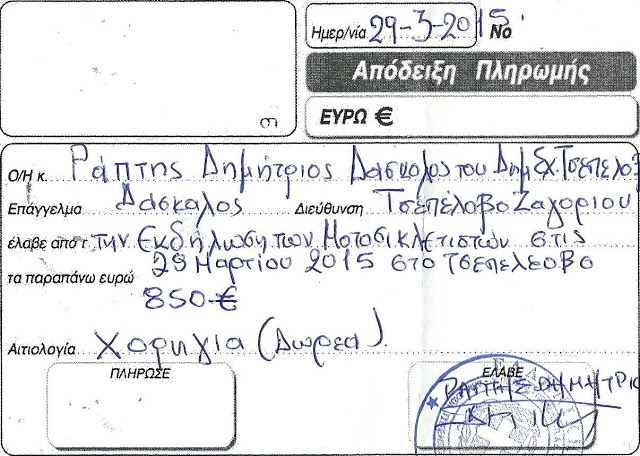 Ημερ/νία 29-3-2015 Νο
Απόδειξη Πληρωμής
ΕΥΡΩ €
Ο/Η κ. Ράπτης Δημήτριος Δάσκαλος του Δημ Σχ. Τσεπελο
Επάγγελμα Δάσκαλος Διεύθυνση Τσεπέλοβο Ζαγορίου
έλαβε από τ την Εκδήλωση των Μοτοσικλετιστών στις
29 Μαρτίου 2015 στο Τσεπελεοβο
τα παραπάνω ευρώ
850 €
Αιτιολογία Χορηγία (Δωρεά).
ΠΛΗΡΩΣΕ ΕΛΑΒΕ
ΡΑΠΤΗΣ ΔΗΜΗΤΡΙΟ